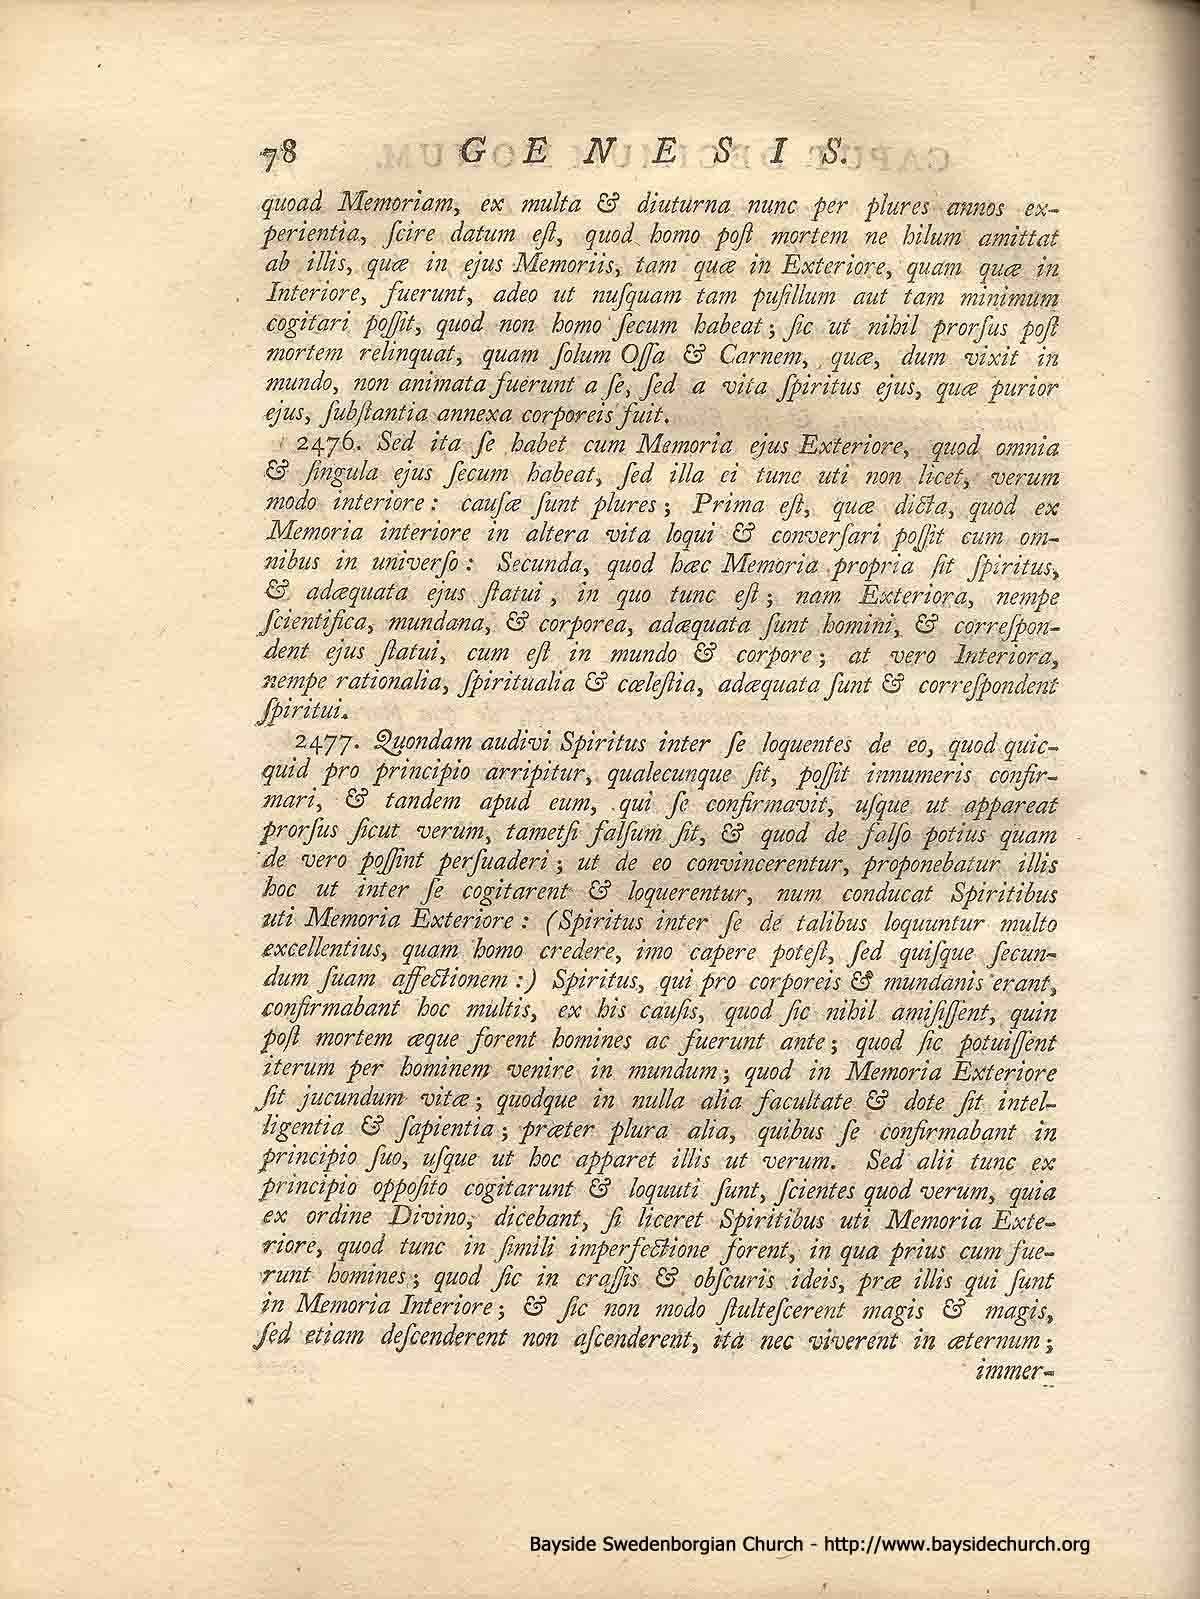 78 GENESIS.
quoad Memoriam, ex multa & diuturna nunc per plures annos ex-
perientia, ſcire datum eſt, quod homo poſt mortem ne hilum amittat
ab illis, quæ in ejus Memoriis, tam quæ in Exteriore, quam quæ in
Interiore, fuerunt, adeo ut nuſquam tam puſillum aut tam minimum
cogitari poſſit, quod non homo ſecum habeat; ſic ut nihil prorſus poſt
mortem relinquat, quam ſolum Oſſa & Carnem, quæ, dum vixit in
mundo, non animata fuerunt a ſe, ſed a vita ſpiritus ejus, quæ purior
ejus, ſubſtantia annexa corporeis fuit.
2476. Sed ita ſe habet cum Memoria ejus Exteriore, quod omnia
& ſingula ejus ſecum habeat, ſed illa ei tunc uti non licet, verum
modo interiore: cauſæ ſunt plures; Prima eſt, quæ dicta, quod ex
Memoria interiore in altera vita loqui & converſari poſſit cum om-
nibus in univerſo: Secunda, quod hæc Memoria propria ſit ſpiritus,
& adæquata ejus ſtatui, in quo tunc eſt; nam Exteriora, nempe
ſcientifica, mundana, & corporea, adæquata ſunt homini, & correſpon-
dent ejus ſtatui, cum eſt in mundo & corpore; at vero Interiora,
nempe rationalia, ſpiritualia & cæleſtia, adæquata ſunt & correſpondent
ſpiritui.
2477. Quondam audivi Spiritus inter ſe loquentes de eo, quod quic-
quid pro principio arripitur, qualecunque ſit, poſſit innumeris confir-
mari, & tandem apud eum, qui ſe confirmavit, uſque ut appareat
prorſus ſicut verum, tametſi falſum ſit, & quod de falſo potius quam
de vero poſſint perſuaderi; ut de eo convincerentur, proponebatur illis
hoc ut inter ſe cogitarent & loquerentur, num conducat Spiritibus
uti Memoria Exteriore: (Spiritus inter ſe de talibus loquuntur multo
excellentius, quam homo credere, imo capere poteſt, ſed quiſque ſecun-
dum ſuam affectionem:) Spiritus, qui pro corporeis & mundanis erant,
confirmabant hoc multis, ex his cauſis, quod ſic nihil amiſiſſent, quin
poſt mortem æque forent homines ac fuerunt ante; quod ſic potuiſſent
iterum per hominem venire in mundum; quod in Memoria Exteriore
ſit jucundum vitæ; quodque in nulla alia facultate & dote ſit intel-
ligentia & ſapientia; præter plura alia, quibus ſe confirmabant in
principio ſuo, uſque ut hoc apparet illis ut verum. Sed alii tunc ex
principio oppoſito cogitarunt & loquuti ſunt, ſcientes quod verum, quia
ex ordine Divino, dicebant, ſi liceret Spiritibus uti Memoria Exte-
riore, quod tunc in ſimili imperfectione forent, in qua prius cum fue-
runt homines; quod ſic in craſſis & obſcuris ideis, præ illis qui ſunt
in Memoria Interiore; & ſic non modo ſtulteſcerent magis & magis,
ſed etiam deſcenderent non aſcenderent, ita nec viverent in æternum;
immer-
Bayside Swedenborgian Church - http://www.baysidechurch.org